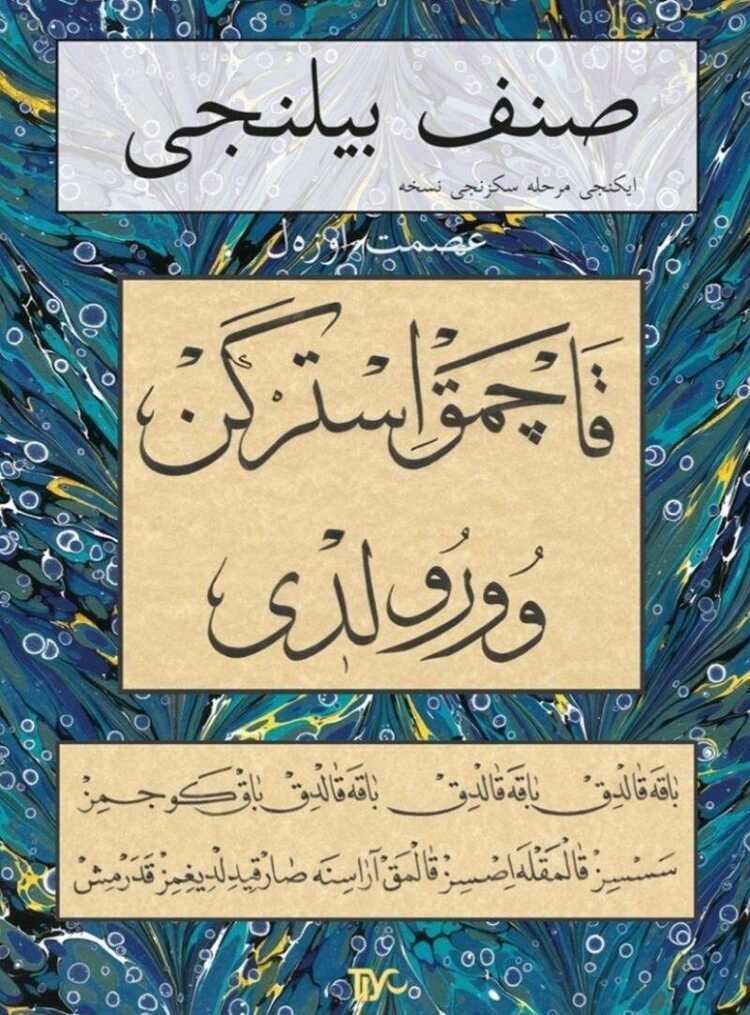 صنف بیلنجی
ایکنجی مرحله سکزنجی نسخه
عصمت اوزه‌ل
قاچمق اِسترکن
وُورُولدی
باقه قالدق باقه قالدق باقه قالدق باق کوجمز
سسسز قالمقله اصسز قالمق آراسنه صارقیدلدیغمز قدرمش
TİYO